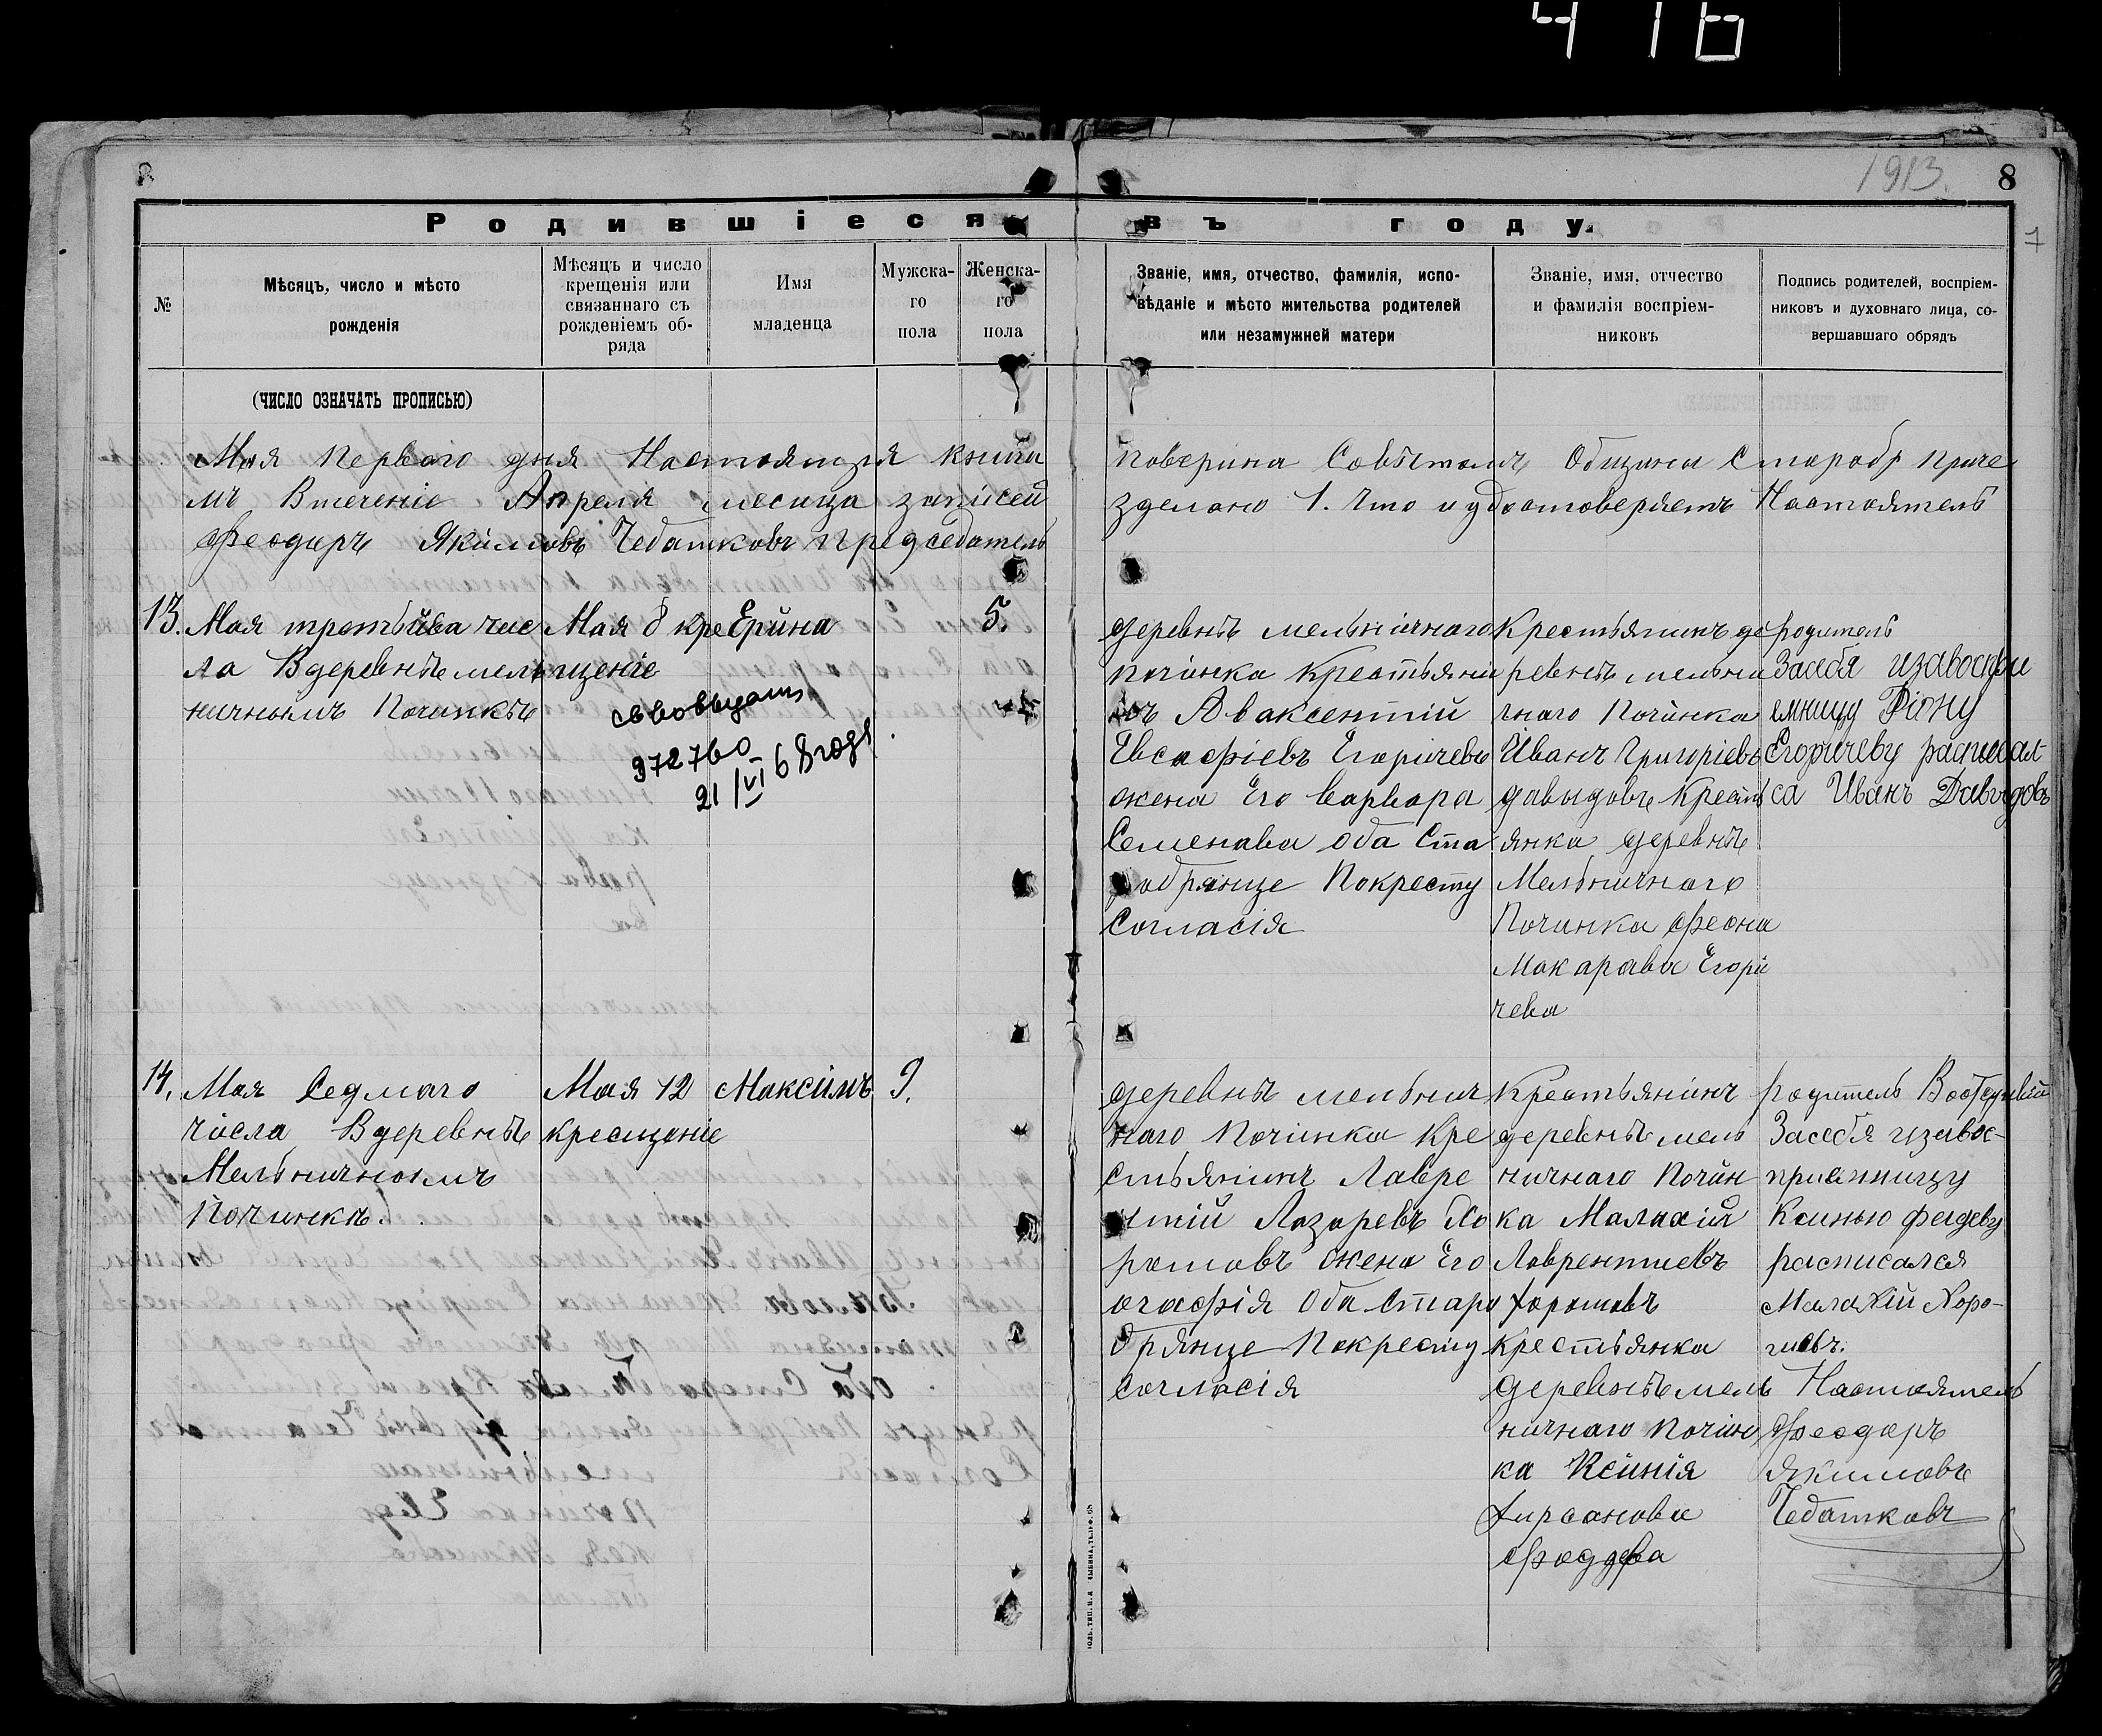 416
8
1913.
8
7
Родившіеся въ году
№
Мѣсяцъ, число и мѣсто
рожденія
Мѣсяцъ и число
крещенія или
связаннаго съ
рожденіемъ об-
ряда
Имя
младенца
Мужска-
го
пола
Женска-
го
пола
Званіе, имя, отчество, фамилія, испо-
вѣданіе и мѣсто жительства родителей
или незамужней матери
Званіе, имя, отчество
и фамилія воспріем-
никовъ
Подпись родителей, воспріем-
никовъ и духовнаго лица, со-
вершавшаго обрядъ
(ЧИСЛО ОЗНАЧАТЬ ПРОПИСЬЮ)
Мая первого дня Настоящя книга поверина Советомъ Общины Старобр приче
мъ втечение Апреля месица записей зделано 1. что и удостоверяетъ Настоятель
Феодаръ Якимовъ Чебатковъ председатель
13.
Мая третьйва чис
ла Вдеревнѣ мель
ничнымъ Починкѣ
Мая 8 кре
щеніе
св во выдано
972760
21/VI 68 года
Ерина
5.
деревнѣ мельничнаго
починка Крестьяни
нъ Аваксентій
Евсафіевъ Егоричевъ
жена Его Варвара
Семенава оба Ста
робрянце Покресту
Согласія
Крестьянинъ де
ревнѣ мельни
чнаго Починка
Иванъ Григоріевъ
давыдовъ Кресть
янка деревнѣ
Мельничнаго
Починка Феона
Макарова Егори
чева
родитель
Засебя изавоспри
емницу Фіону
Егоричеву расписал-
са Иванъ Давыдовъ
14.
Мая Седмаго
числа Вдеревнѣ
Мельничномъ
Починкѣ.
Мая 12
кресщеніе
Максимъ
9.
деревнѣ мельнич
наго Починка Кре
стьянинъ Лавре
нтій Лазаревъ Хо
рошовъ жена Его
агафія Оба Старо
брянце Покресту
согласія
Крестьянинъ
деревнѣ мель
ничнаго Почин
ка Малахій
Лаврентиевъ
Хорошовъ
крестьянка
деревнѣ мель
ничнаго почин
ка Ксинія
Хирсанова
Фаддева
родитель
Засебя изавос-
приемницу
Ксинью Фадеву
расписался
Малахій Хоро-
шовъ.
Настоятель
Феодаръ
Якимовъ
Чебатковъ